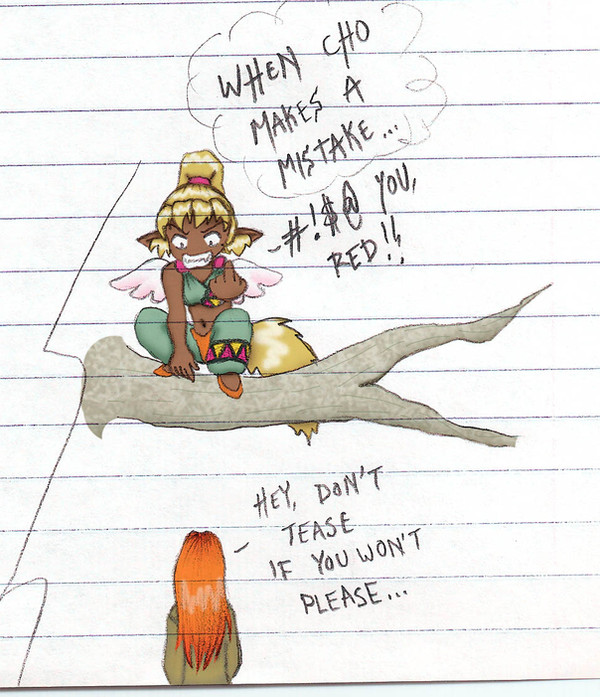 WHEN CHO
MAKES A
MISTAKE...
#!$@ YOU,
RED!!
HEY, DON'T
TEASE
IF YOU WON'T
PLEASE...